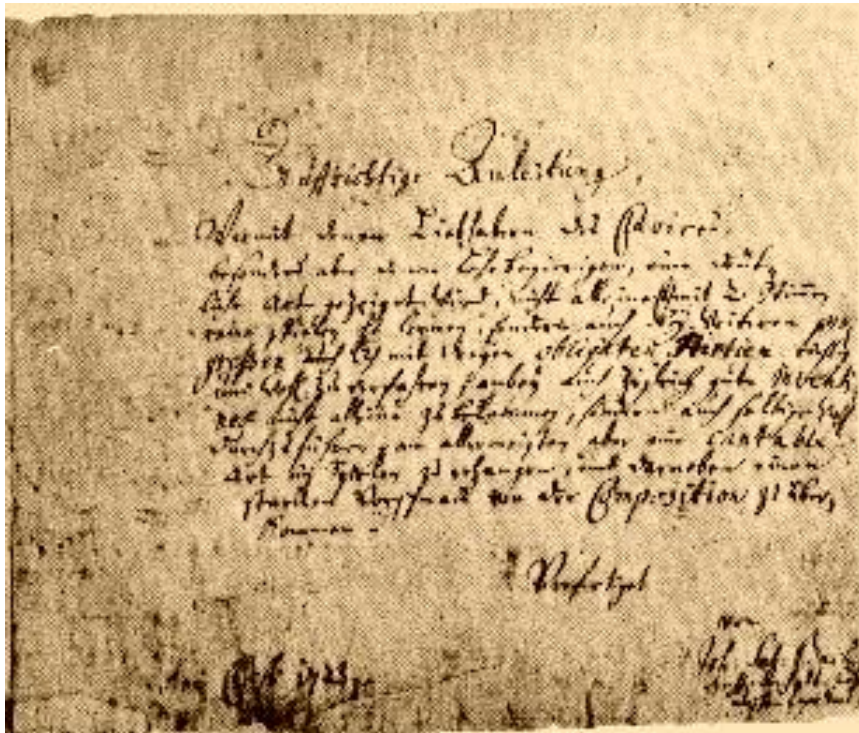 Auffrichtige Anleitung,
Wormit denen Liebhabern des Clavires,
besonders aber denen Lehrbegierigen, eine deüt-
liche Art gezeiget wird, nicht alleine mit 2 Stimen
reine spielen zu lernen, sondern auch bey weiteren pro-
greßen auch (2) mit dreyen obligaten Partien richtig
und wohl zu verfahren, anbey auch zugleich gute inventi
ones nicht alleine zu bekommen, sondern auch selbige wohl
durchzuführen, am allermeisten aber eine cantable
Art im Spielen zu erlangen, und darneben einen
starcken Vorschmack von der Composition zu über-
kommen.
Verfertiget
von
Joh. Seb. Bach
Anno 1723.